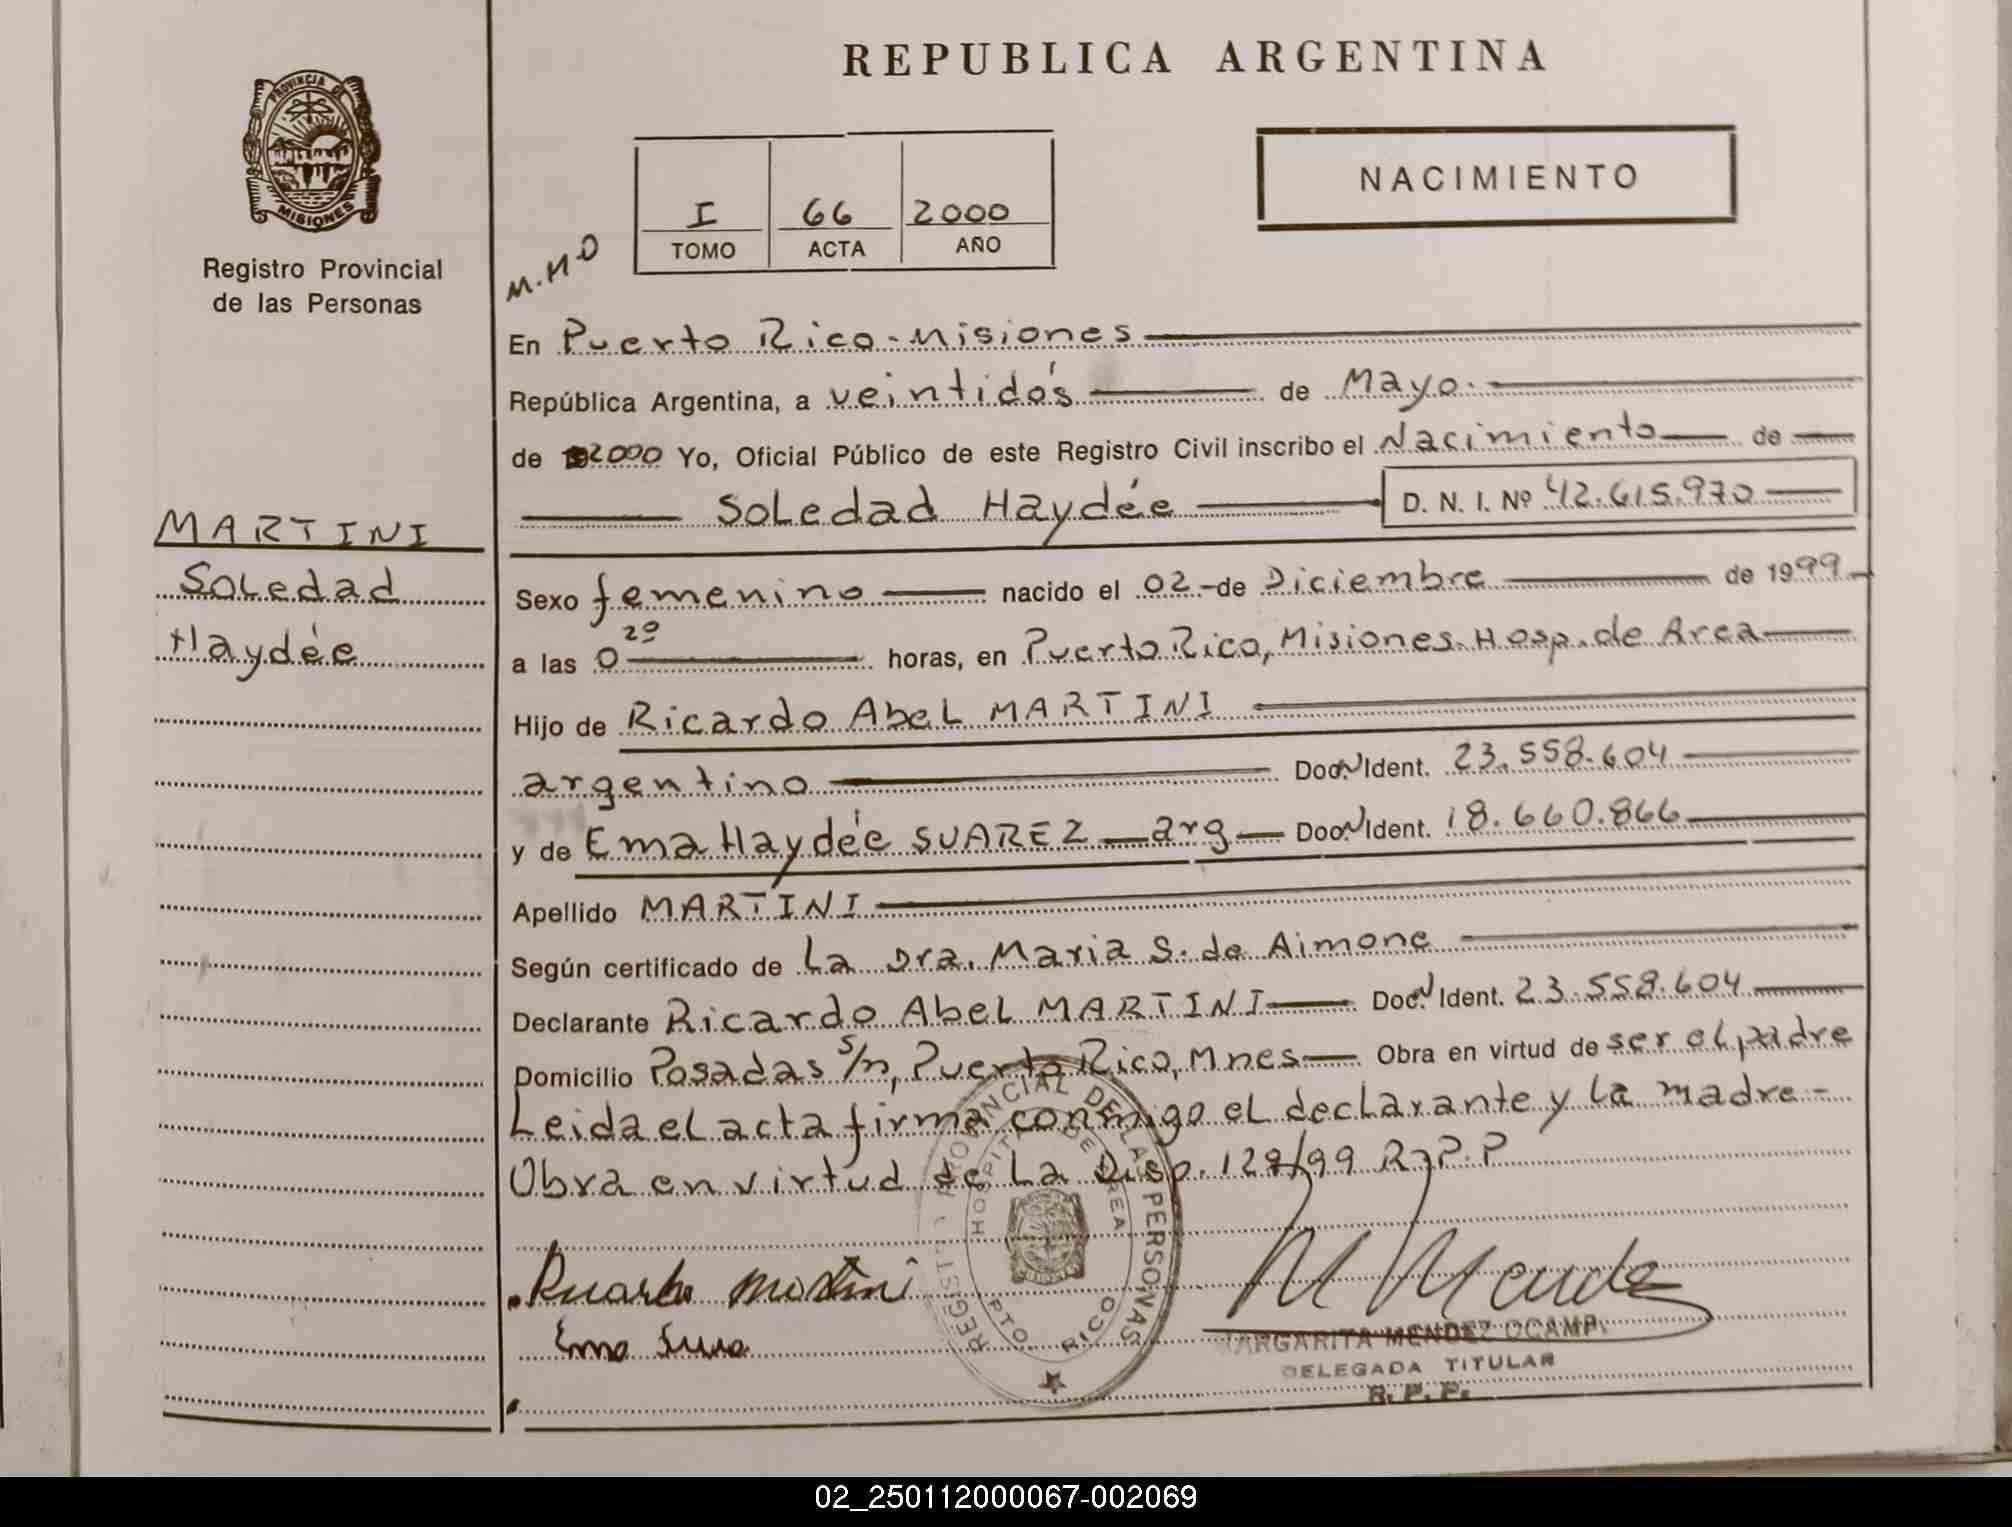 REPUBLICA ARGENTINA
PROVINCIA DE
MISIONES
Registro Provincial
de las Personas
NACIMIENTO
I 66 2000
TOMO ACTA AÑO
M.M.O
En Puerto Rico - Misiones
República Argentina, a veintidós de Mayo.
de 2000 Yo, Oficial Público de este Registro Civil inscribo el Nacimiento de
Soledad Haydée D. N. I. Nº 42.615.970
MARTINI
Soledad
Haydée
Sexo femenino nacido el 02 - de Diciembre de 1999
a las 0 20 horas, en Puerto Rico, Misiones. Hosp. de Area
Hijo de Ricardo Abel MARTINI
argentino Doc. N Ident. 23.558.604
y de Ema Haydée SUAREZ - arg - Doc. N Ident. 18.660.866
Apellido MARTINI
Según certificado de La Dra. Maria S. de Aimone
Declarante Ricardo Abel MARTINI Doc. N Ident. 23.558.604
Domicilio Posadas s/n, Puerto Rico, Mnes Obra en virtud de ser el padre
Leida el acta firma conmigo el declarante y la madre -
Obra en virtud de La Disp. 129/99 R.P.P
REGISTRO PROVINCIAL DE LAS PERSONAS
HOSPITAL DE AREA
PTO RICO
Ricardo Martini
Ema Suarez
M Mendez
MARGARITA MENDEZ OCAMP.
DELEGADA TITULAR
R. P. P.
02_250112000067-002069